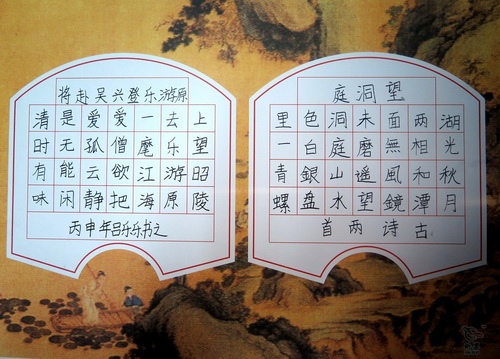 望洞庭
湖光秋月
两相和潭
面無風鏡
未磨遥望
洞庭山水
色白銀盘
里一青螺
古诗两首
将赴吴兴登乐游原
清时有味
是无能闲
爱孤云静
爱僧欲把
一麾江海
去乐游原
上望昭陵
丙申年吕乐乐书之